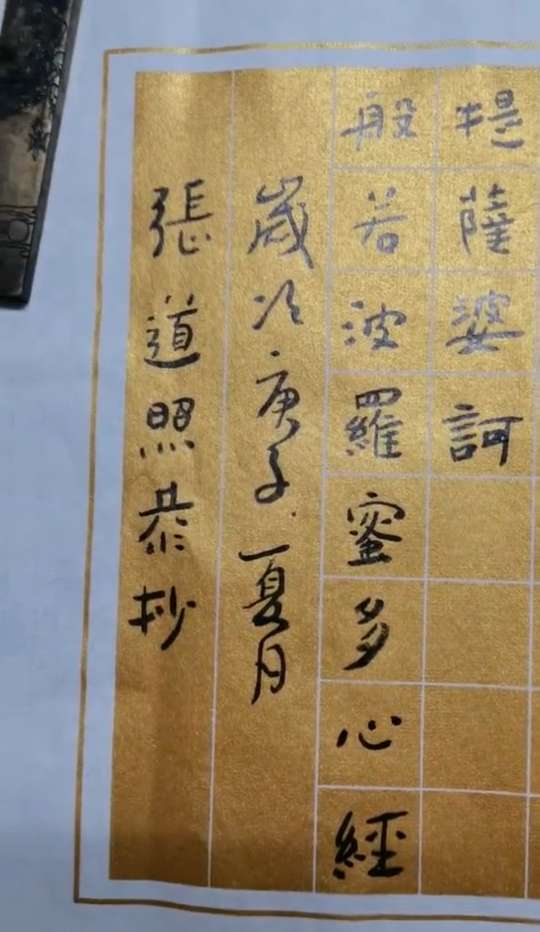 提薩婆訶
般若波羅蜜多心經
歲次庚子夏月
張道照恭抄